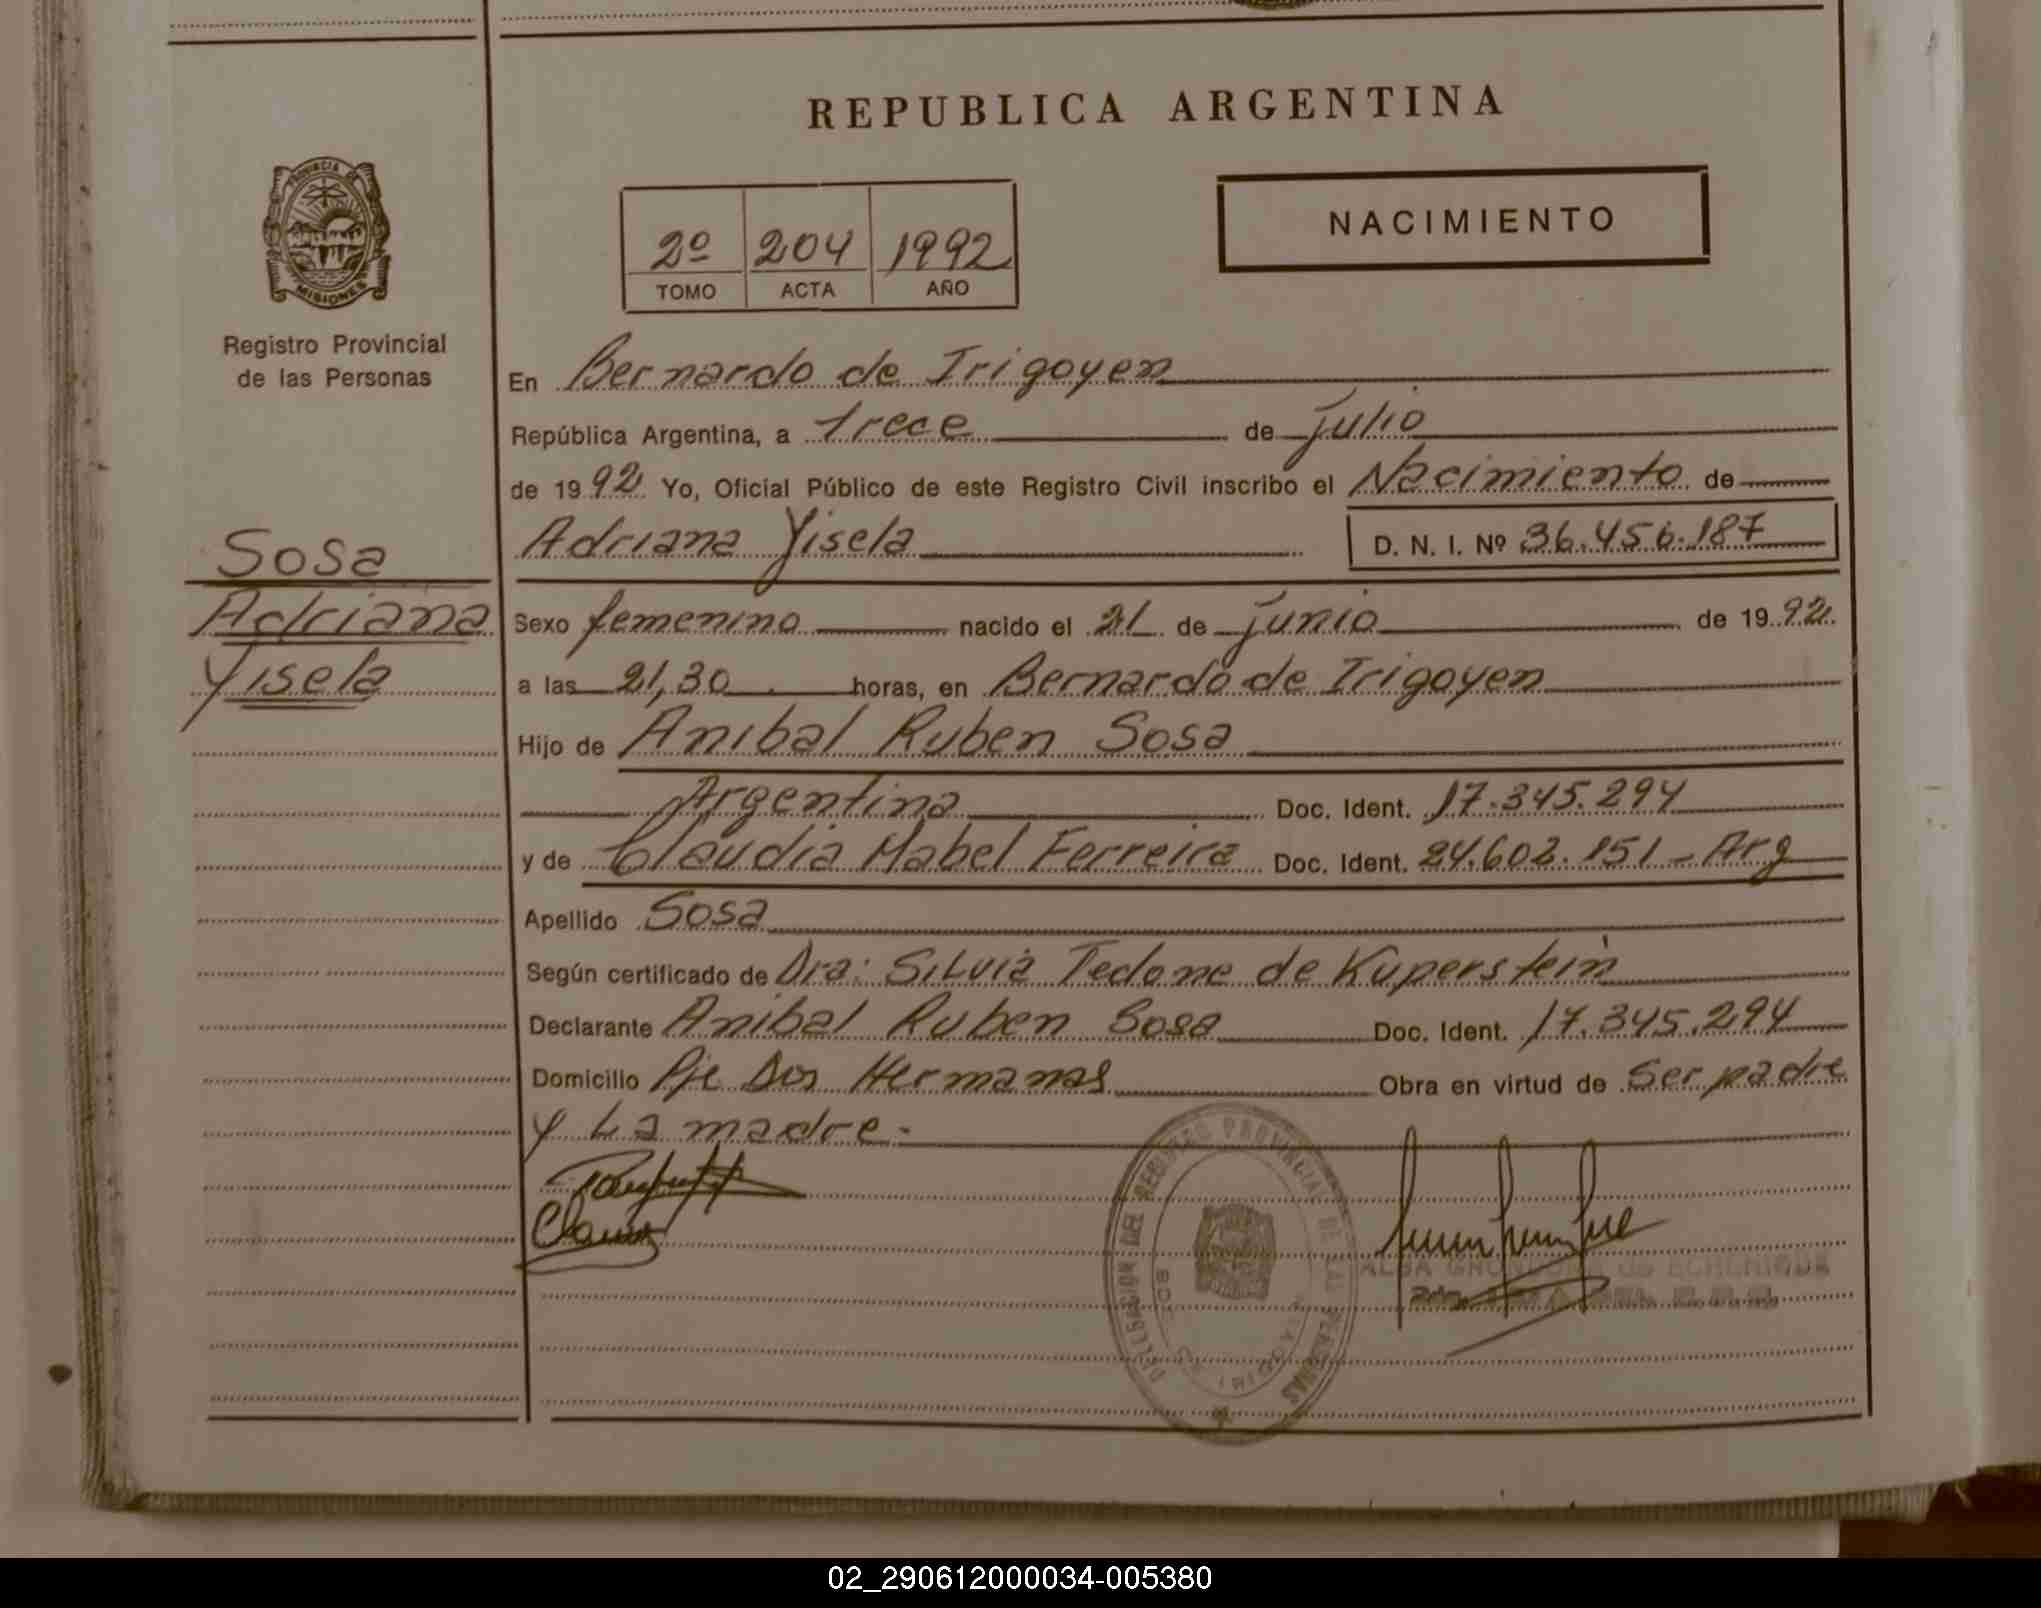 REPUBLICA ARGENTINA
PROVINCIA DE
MISIONES
Registro Provincial
de las Personas
2º 204 1992
TOMO ACTA AÑO
NACIMIENTO
En Bernardo de Irigoyen
República Argentina, a trece de julio
de 1992 Yo, Oficial Público de este Registro Civil inscribo el Nacimiento de
Adriana Yisela D. N. I. Nº 36.456.187
Sosa
Adriana
Yisela
Sexo femenino nacido el 21 de junio de 1992
a las 21,30 horas, en Bernardo de Irigoyen
Hijo de Anibal Ruben Sosa
Argentina Doc. Ident. 17.345.294
y de Claudia Mabel Ferreira Doc. Ident. 24.602.151 - Arg
Apellido Sosa
Según certificado de Dra: Silvia Tedone de Kuperstein
Declarante Anibal Ruben Sosa Doc. Ident. 17.345.294
Domicilio Pje Dos Hermanas Obra en virtud de Ser padre
y La madre.-
DELEGACION DEL REGISTRO PROVINCIAL DE LAS PERSONAS
ALBA de ECHENIQUE
02_290612000034-005380